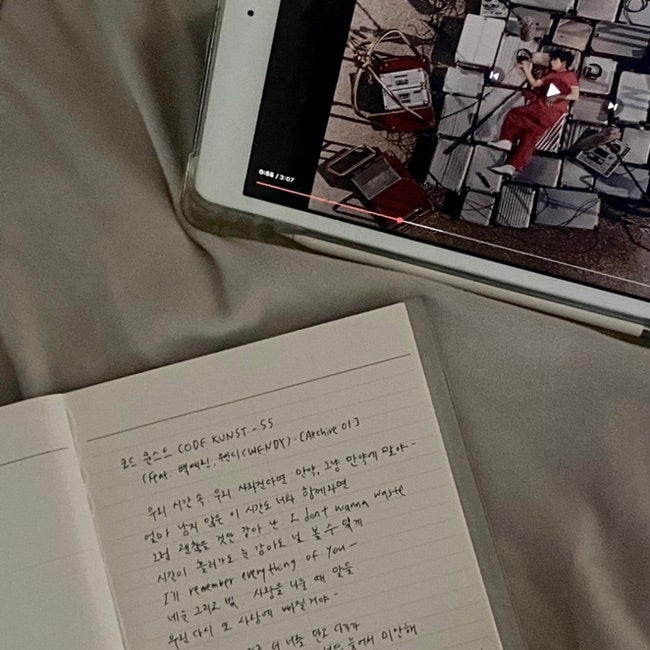 0:56 / 3:07
코드 쿤스트 CODE KUNST - 55
(feat. 백예린, 웬디(WENDY)) - [Archive 01]
우리 시간 속 우리 사라진다면 만약, 그냥 만약에 말야 -
얼마 남지 않은 이 시간도 너와 함께라면
그럼 괜찮을 것만 같아 난 I don't wanna waste
시간이 흘러가도 눈 감아도 널 볼 수 있게
I'll remember everything of you -
네온 그리고 빛, 사랑을 나눌 때 말들
우린 다시 또 사랑에 빠질거야 -
더 너를 안고
들어서 미안해